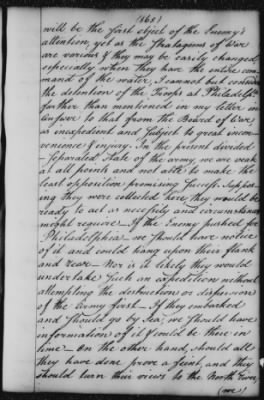 (168)
will be the first object of the Enemy's
attention, yet as the Stratagems of War
are various & they may be easily changed,
especially when they have the entire com-
mand of the water, I cannot but consider
the detention of the Troops at Philadelpa.
farther than mentioned in my letter in
answer to that from the Board of War
as inexpedient and Subject to great incon-
venience & injury. In the present divided
& seperated State of the army, we are weak
at all points and not able to make the
least opposition promising Success. Suppos-
ing they were collected here, they would be
ready to act as necessity and circumstances
might require. If the Enemy pushed for
Philadelphia, we should have notice
of it and could hang upon their flank
and Rear. Nor is it likely they would
undertake Such an expedition without
attempting the distruction or dispersion
of the Army first. If they embarked
and Should go by Sea; we Should have
information of it & could be there in
time. On the other hand, should all
they have done prove a feint, and they
should turn their views to the North River,
(we)